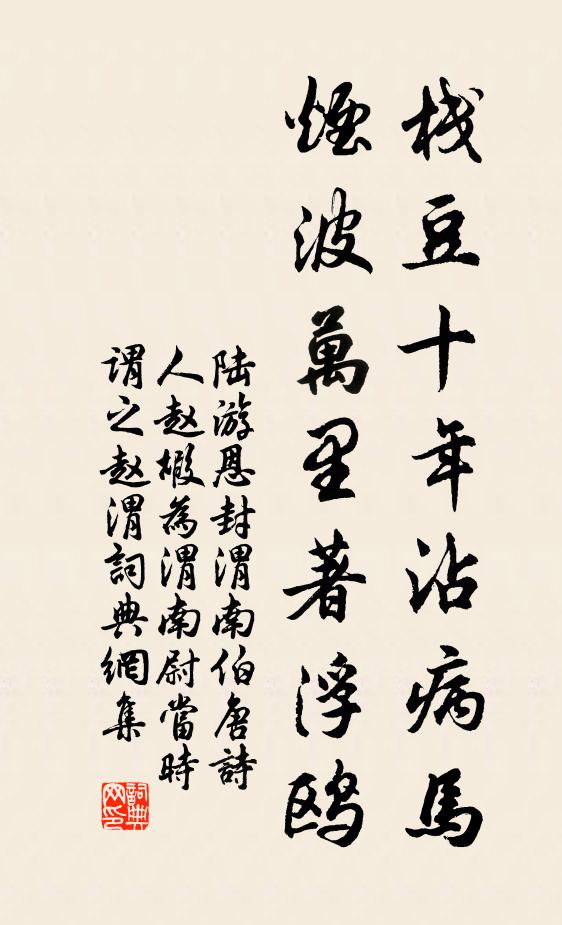 栈豆十年沾病馬
煙波萬里著浮鸥
陆游恩封渭南伯唐詩
人赵嘏為渭南尉當時
谓之赵渭詞典網集
詞典网印